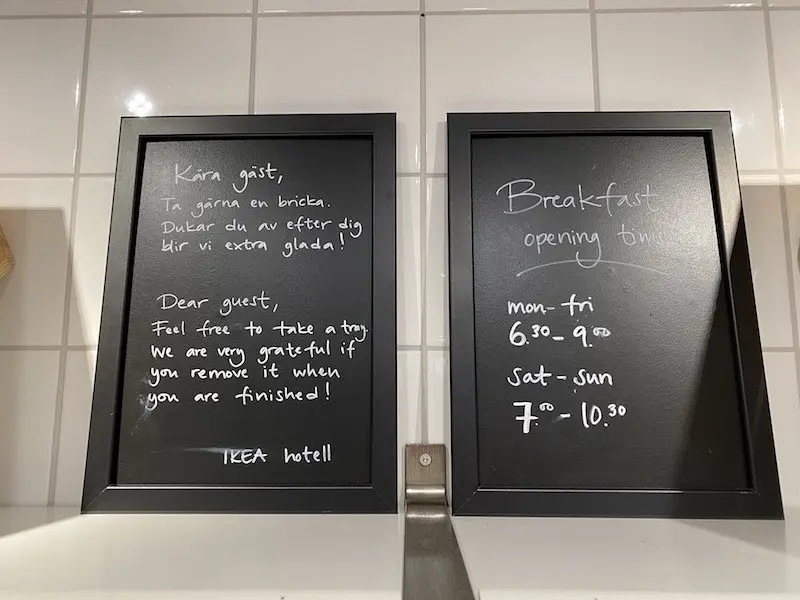 Kära gäst,
Ta gärna en bricka.
Dukar du av efter dig
blir vi extra glada!
Dear guest,
Feel free to take a tray.
We are very grateful if
you remove it when
you are finished!
IKEA hotell
Breakfast
opening
mon-fri
6.30-9.00
Sat-Sun
7.00-10.30